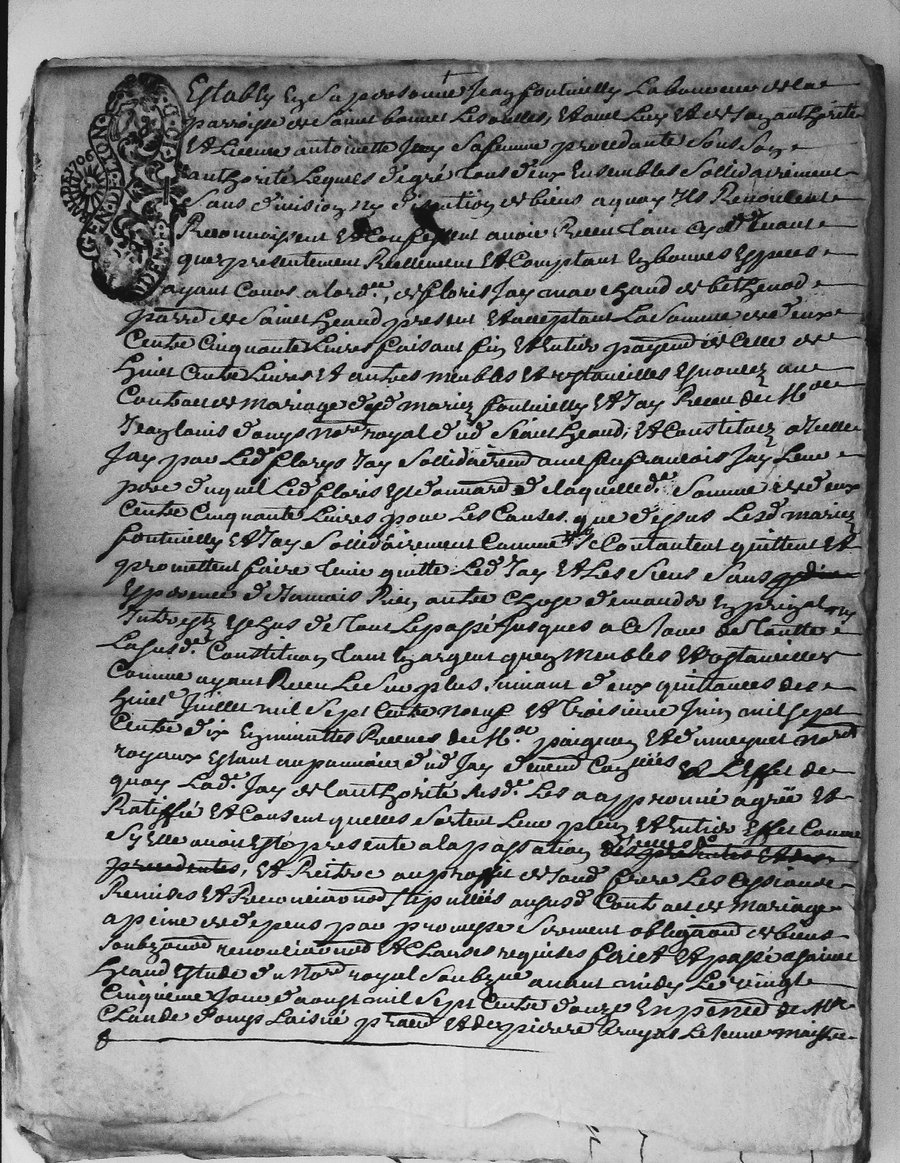 GEN. DE LYON
Establÿ En Sa personne Jean fontvielly Laboureur de la
parroisse de Sainct bonnet Les oulles, Et avec Luy Et de Son authorité
Et Licence antoinette Jay Sa femme procedante Sous Son
authorité Lequels de gré tous deux Ensembles Sollidairement
Sans division ny discution de biens a quoy Ils Renoncent
Reconnoissent Et Confessent avoir Receu tant cy dt. devant
que presentement Reellement Et Comptant En bonnes Especes
ayant Cours a lord.ce, de floris Jay marchand de bethenod
parr.e de Sainct heand present Et acceptant La Somme de deux
Cents Cinquante Livres faisant fin Et Entier payem.t de Celle de
huict Cents Livres Et autres meubles Et Ustancilles Enoncez au
Contract de mariage desd. mariez fontvielly Et Jay Receu du M.e
Jean louis donys No.re royal dud. Sainct heand, Et Constituez a Icelle
Jay par Led. florys Jay Sollidairem.t avec feu francois Jay Leur
pere duquel Led. floris Est donnat.re de laquelle d.e Somme de deux
Cents Cinquante Livres pour Les Causes que dessus Lesd. mariez
fontvielly Et Jay Sollidairement Comme d.t Se Contantent quittent Et
promettent faire tenir quitte Led. Jay Et Les Siens Sans
Esperance de Jamais Rien autre chose demander En principal ny
Interestz Eschus de tout Le passé Jusques a ce Jour de toutte
La susd.e Constitution tant En argent quen Meubles Et Ustancilles
Comme ayant Receu Le Surplus Suivant deux quittances des
huict Juillet mil Sept Cents Neuf Et troisieme Juin mil Sept
Cents dix En minuttes Receues du M.e paignon Et dumeynet No.res
royaux Estant au pouvoir dud. Jay Et Leffet de
quoy Lad. Jay de L'authorité susd.e Les a approuvé agreé Et
Ratiffié Et Consent quelles Sortent Leur plein Et Entier Effet Comme
Sy Elle avoit Esté presente a la passation
precedentes, Et Reitere au proffit de Sond. frere Les Cessions
Remises Et Renonciaons Stipullées au susd. Contract de Mariage
a peine de depens par promesse Serment obligaon de biens
Soubzmi.on renonciaons Et Clauses requises faict Et passé a Sainct
heand Estude du No.re royal Soubzne avant midy Le vingt
Cinquieme Jour d'aoust mil Sept Cents douze En pn.ce de M.e
Claude donys Laisné Et de pierre Royat Le Jeune maistre